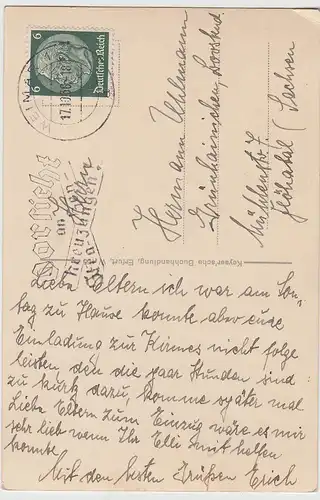 6 6
Deutsches Reich
WEIMAR
17.10.
Vorsicht
an
Straßen-
kreuzungen!
Hermann Uhlmann
Grünhainichen,
Mühlenstr. 7
Flöhatal (Sachsen
Keyser'sche Buchhandlung, Erfurt.
Liebe Eltern ich war am Son,
tag zu Hause konnte aber eure
Einladung zur Kirmes nicht folge
leisten, den die paar Stunden sind
zu kurtz dazu, komme später mal
Liebe Eltern zum Einzug wäre es mir
sehr lieb wenn Ihr Elli mit helfen
konnte.
Mit den besten Grüßen Erich